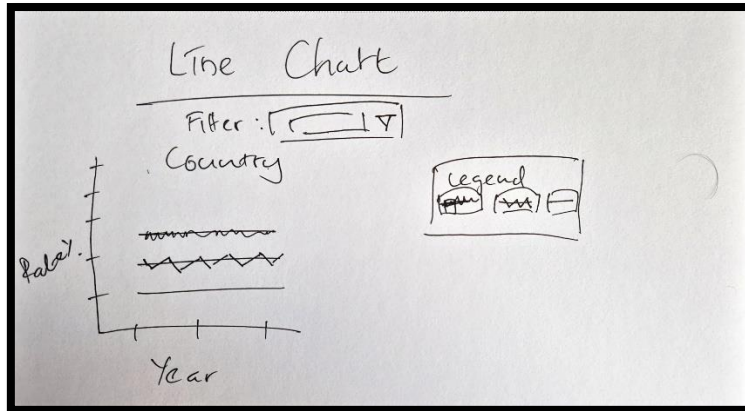 Line Chart
Filter:
Country
Legend
Rate%
Year